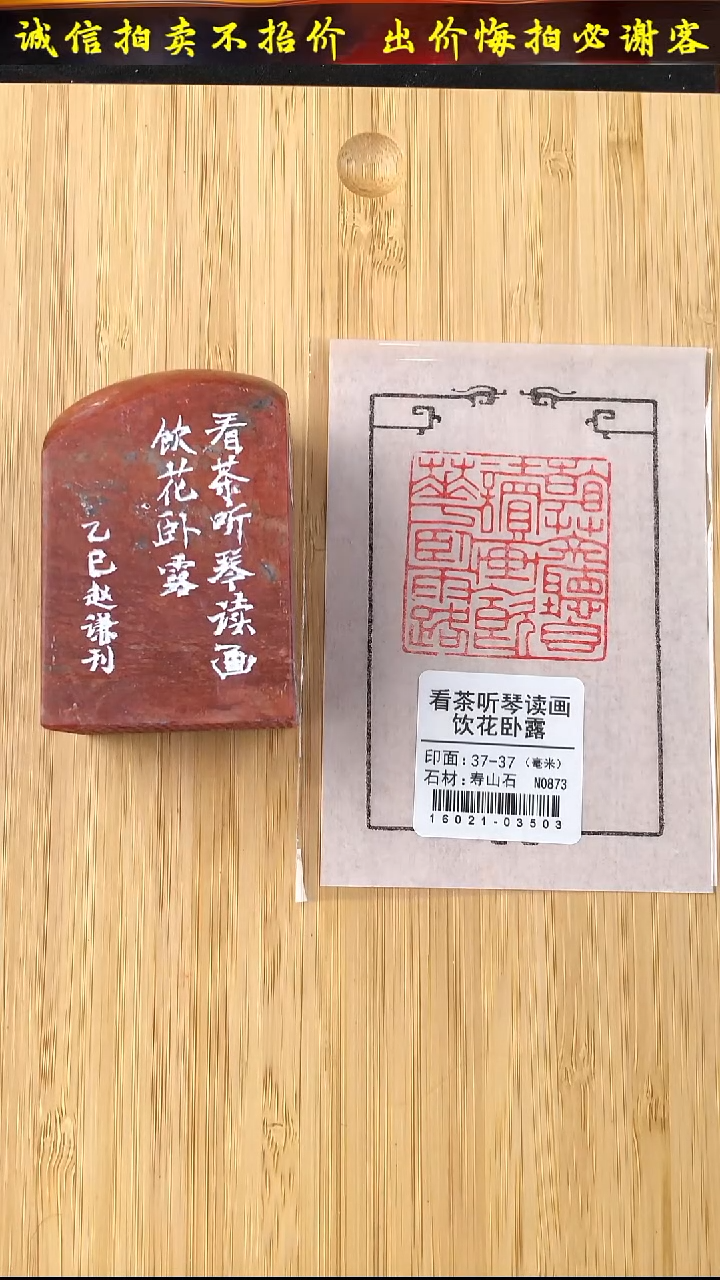 诚信拍卖不抬价 出价悔拍必谢客
看茶听琴读画
饮花卧露
乙巳赵谦刊
看茶听琴读画
饮花卧露
印面：37-37（毫米）
石材：寿山石 NO873
16021-03503